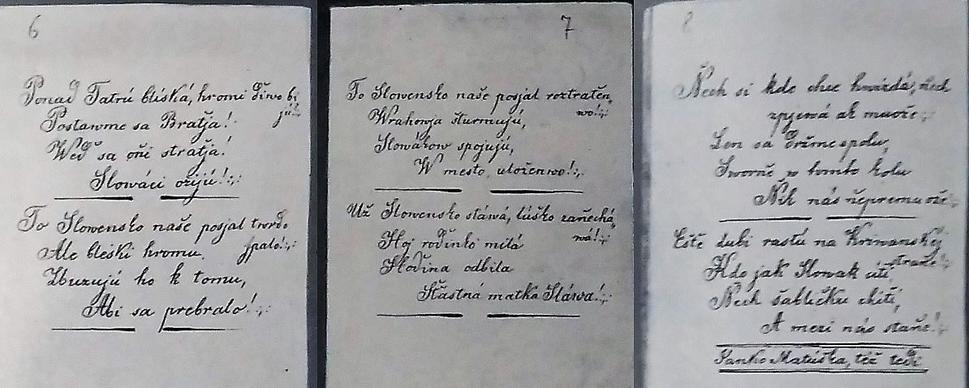 6
Ponad Tatrú blíská, hromi ďiwo bi
jú!:,:
Postawme sa Bratja!
Weď sa oňi stratja!
Slowáci ožijú!:,:
To Slowensko naše posjal twrďo
spalo!:,:
Ale bleski hromu.
Zbuzujú ho k tomu,
Abi sa prebralo!:,:
7
To Slowensko naše posjal roztraťen,
wo!:,:
Wrahowja šturmujú,
Slowákow spojujú,
W mesto, uloženwo!:,:
Už Slowensko stáwá, lúsko zaňechá,
wá!:,:
Hoj roďinko milá
Hoďina odbila
Šťastná matka Sláwa!:,:
8
Ňech si kdo chce hwízdá, ňech
zpjewá ak muože:,:
Len sa držme spolu,
Sworňe w tomto kolu
Nik nás ňepremuože:,:
Ešte dubi rastú na Kriwanskej
straňe!:,:
Kdo jak Slowak cíti
Ňech šabličku chití,
A mezi nás staňe!:,:
Janko Matúška, též teďi